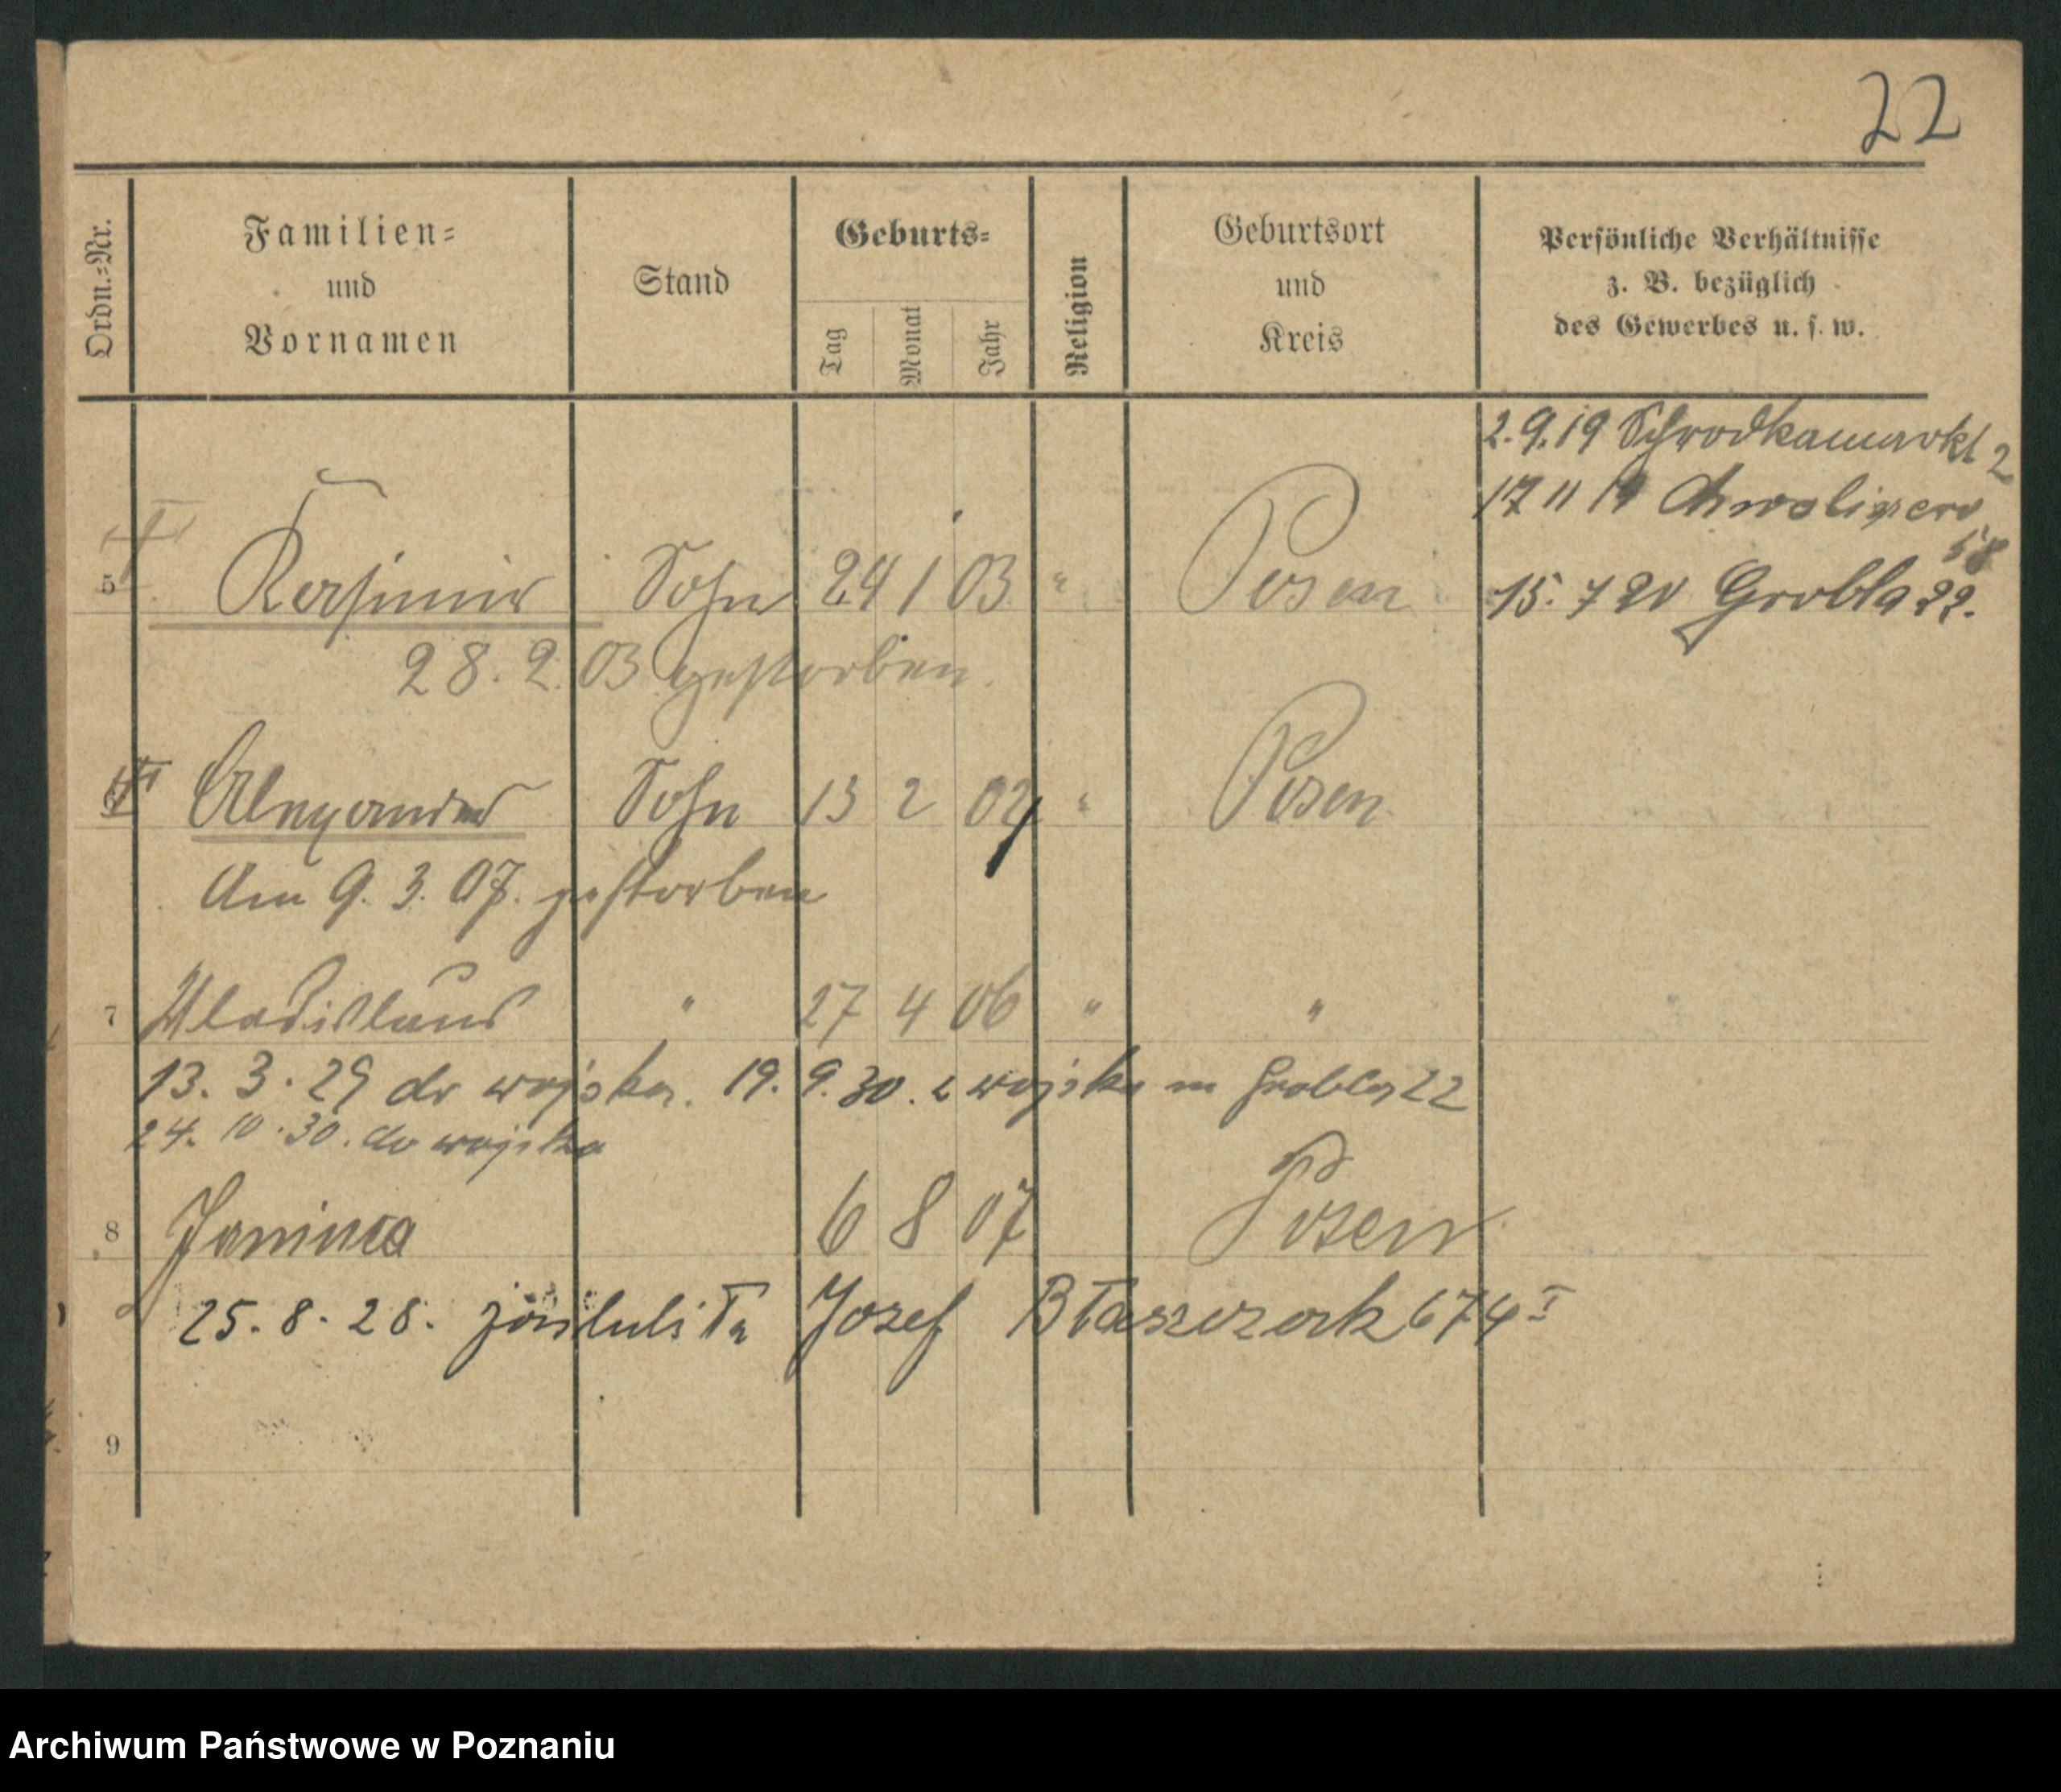 22
Ordn.-Nr.
Familien-
und
Vornamen
Stand
Geburts-
Tag
Monat
Jahr
Religion
Geburtsort
und
Kreis
Persönliche Verhältnisse
z. B. bezüglich
des Gewerbes u. s. w.
2.9.19 Schrodkamarkt 2
17 11 19
15. 7 20 Grobla 22.
5 Kasimir Sohn 24 1 03 " Posen
28. 2. 03 gestorben.
6 Alexander Sohn 13 2 04 " Posen
Am 9. 3. 07. gestorben
7 Wladislaus " 27 4 06 " "
13. 3. 29 do wojska. 19. 9. 30. z wojska na Grobla 22
24. 10. 30. do wojska
8 Janina 6 8 07 Posen
25. 8. 28. Jozef Błaszczak 674 I
9
Archiwum Państwowe w Poznaniu